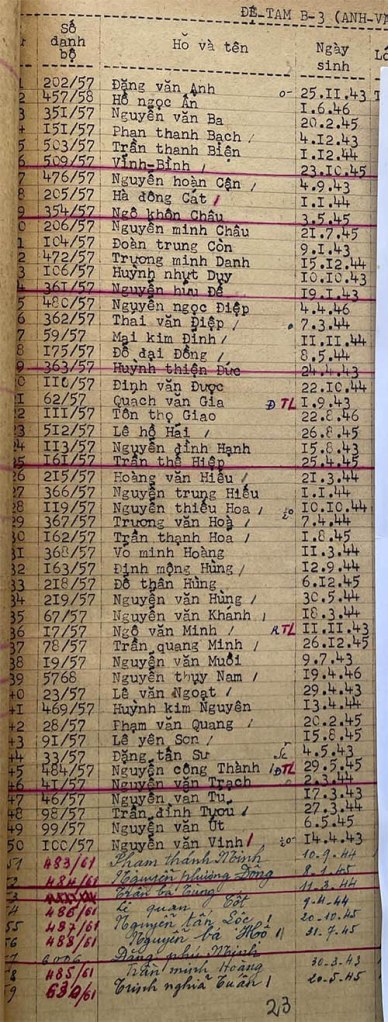 ĐỆ TAM B-3 (ANH-V
Số danh bộ Hỏ và tên Ngày sinh
1 202/57 Đặng văn Anh 25.II.43
2 457/58 Hồ ngọc Ẩn I.6.46
3 35I/57 Nguyễn văn Ba 20.2.45
4 I5I/57 Phan thanh Bạch 4.I2.43
5 503/57 Trần thanh Biên I.I2.44
6 509/57 Vĩnh-Bỉnh 23.I0.45
7 476/57 Nguyễn hoàn Cận 4.9.43
8 205/57 Hà đông Cát I.I.44
9 354/57 Ngô khôn Châu 3.5.45
0 206/57 Nguyễn minh Châu 2I.7.45
1 I04/57 Đoàn trung Còn 9.I.43
2 472/57 Trương minh Danh I5.I2.44
3 I06/57 Huỳnh nhựt Duy I0.I0.43
4 36I/57 Nguyễn hữu Đễ I9.I.43
5 480/57 Nguyễn ngọc Điệp 4.4.46
6 362/57 Thai văn Điệp 7.3.44
7 59/57 Mai kim Đỉnh II.II.44
8 I75/57 Đỗ đại Đồng 8.5.44
9 363/57 Huỳnh thiện Đức 24.4.43
0 II0/57 Đinh văn Được 22.I0.44
1 62/57 Quach văn Gia Đ TL I.9.43
2 III/57 Tôn thọ Giao 22.8.46
3 5I2/57 Lê hồ Hải 26.8.45
4 II3/57 Nguyễn đình Hạnh I5.8.43
5 I6I/57 Trần thế Hiệp 25.4.45
26 2I5/57 Hoàng văn Hiếu 2I.3.44
27 366/57 Nguyễn trung Hiếu I.I.44
28 II9/57 Nguyễn thiếu Hoa I0.I0.44
29 367/57 Trương văn Hoà 7.4.44
30 I62/57 Trần thạnh Hoa I.8.45
31 368/57 Võ minh Hoàng II.3.44
32 I63/57 Đinh mộng Hùng I2.9.44
33 2I8/57 Đỗ thân Hùng 6.I2.45
34 2I9/57 Nguyễn văn Hùng 30.5.44
35 67/57 Nguyễn văn Khanh I8.3.44
36 I7/57 Ngô văn Minh R TL II.II.43
37 78/57 Trần quang Minh 26.I2.45
38 I9/57 Nguyễn văn Muôi 9.7.43
39 5768 Nguyễn thụy Nam I9.4.46
+0 23/57 Lê văn Ngoạt 29.4.43
+I 469/57 Huỳnh kim Nguyên I3.4.44
+2 28/57 Phạm văn Quang 20.2.45
+3 9I/57 Lê yên Sơn I5.8.45
+4 33/57 Đặng tấn Sư 4.5.43
+5 484/57 Nguyễn công Thành Đ TL 29.5.45
46 4I/57 Nguyễn văn Trạch 2.3.44
47 46/57 Nguyễn văn Tú I7.3.43
48 98/57 Trần đình Tựou 27.3.44
49 99/57 Nguyễn văn Út 6.5.45
50 I00/57 Nguyễn văn Vinh I4.4.43
51 483/61 Phạm thành Minh 10-9-44
2 484/61 Nguyễn thượng Đông 8-1-45
3 Trần bá Tùng 11-3-44
4 486/61 Lê quan Tốt 9-4-44
55 487/61 Nguyễn tấn Lộc 20-10-45
56 488/61 Nguyễn bá Hổ 31-7-45
57 6006 Đặng phú Minh 30-3-43
8 485/61 Trần minh Hoàng
9 630/61 Trịnh nghĩa Tuấn 20-5-45
23